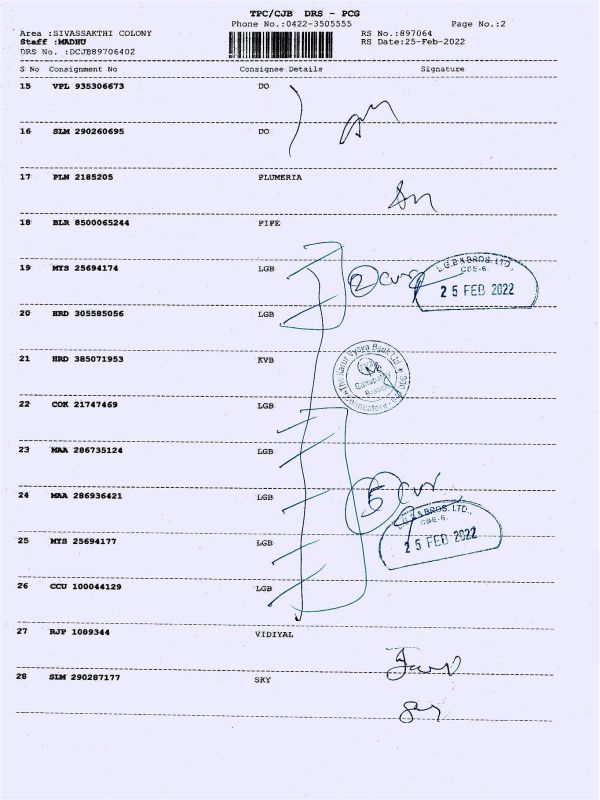 TPC/CJB DRS - PCG
Phone No.:0422-3505555 Page No.:2
Area :SIVASSAKTHI COLONY RS No.:897064
Staff :MADHU RS Date:25-Feb-2022
DRS No. :DCJB89706402
S No Consignment No Consignee Details Signature
15 VPL 935306673 DO
16 SLM 290260695 DO
17 PLN 2185205 PLUMERIA
18 BLR 8500065244 FIFE
19 MYS 25694174 LGB
2
L.G.B & BROS. LTD.,
CBE-6.
25 FEB 2022
20 HRD 305585056 LGB
21 HRD 385071953 KVB
The Karur Vysya Bank Ltd
Ganapathy
Branch
Coimbatore
22 COK 21747469 LGB
23 MAA 286735124 LGB
24 MAA 286936421 LGB
5
L.G.B & BROS. LTD.,
CBE-6.
25 FEB 2022
25 MYS 25694177 LGB
26 CCU 100044129 LGB
27 RJP 1089344 VIDIYAL
28 SLM 290287177 SKY